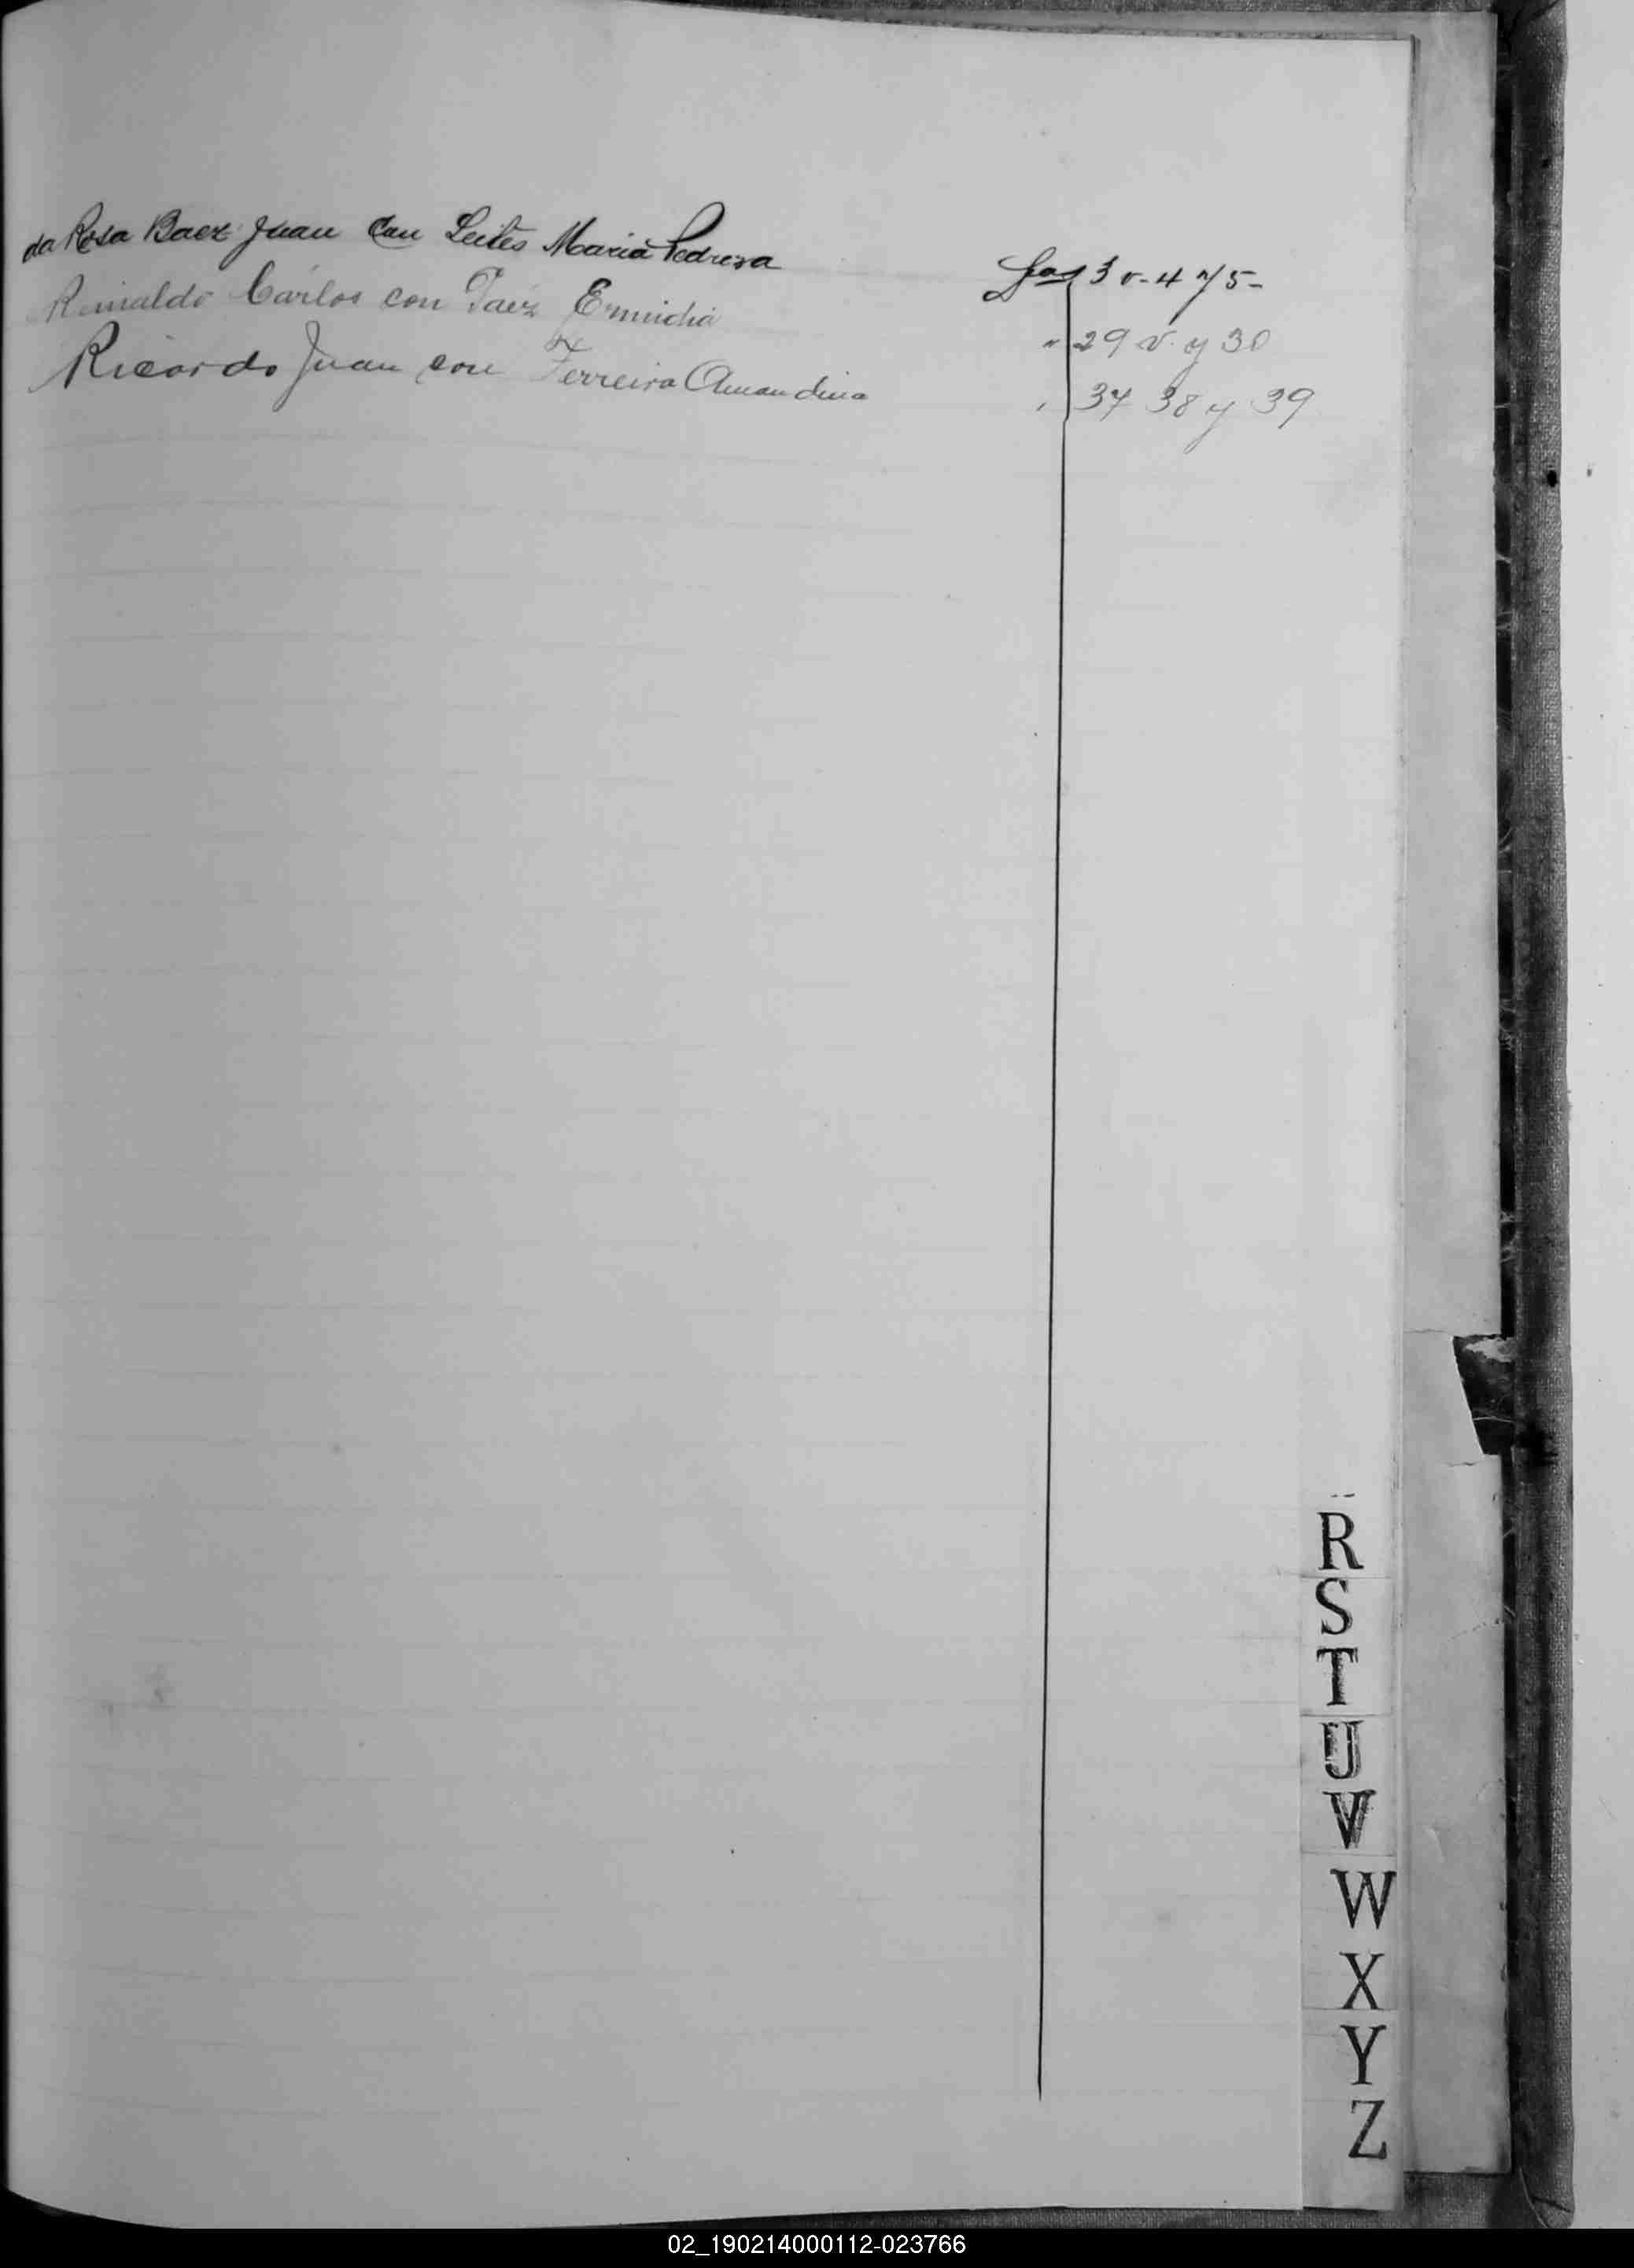 da Rosa Baez Juan con Leites Maria Pedrera
Reinaldo Cárlos con Paez
Ricardo Juan con Ferreira Amandina
3 v. - 4 y 5 -
" 29 v. y 30
37 38 y 39
R
S
T
U
V
W
X
Y
Z
02_190214000112-023766